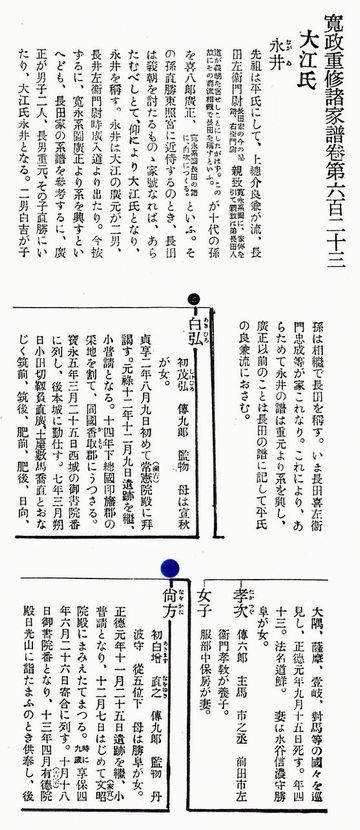 寬政重修諸家譜卷第六百二十三
大江氏
永井
ながゐ
先祖は平氏にして、上總介良兼が流、長
田左衞門尉 親致
道が義朝を害せしことにしたがはず。この
故にその嫡流相續て長田を稱すといふ。
が十代の孫
を喜八郎廣正、寛永系圖長田の譜
につくる。といふ。そ
の孫直勝東照宮に近侍するのとき、長田
は義朝を討たるものゝ家號なれば、あら
たむべしとて、仰により大江氏となり、
永井を稱す。永井は大江の廣元が二男、
長井左衞門尉時廣入道より出たり。今按
するに、寬永系圖廣正より系を興すとい
へども、長田家の系譜を參考するに、廣
正が男子二人、長男重元、その子直勝にい
たり、大江氏永井となる。二男白吉が子
孫は相繼で長田を稱す。いま長田喜左衞
門忠成等が家これなり。これにより、あ
らためて永井の譜は重元より系を興し、
廣正以前のことは長田の譜に記して平氏
の良兼流におさむ。
白弘
あきひろ
初茂弘 傳九郎 監物 母は宣秋
が女。
貞享二年八月九日初めて常憲院殿に拜
(綱吉)
謁す。元祿十二年十二月九日遺跡を繼、
小普請となる。十四年下總國印旛郡の
采地を割て、同國香取郡にうつさる。
寶永五年三月二十五日西城の御書院番
に列し、後本城に勤仕す。七年三月朔
日小田切靱負直廣、土屋數馬喬直とおな
じく筑前、筑後、肥前、肥後、日向、
大隅、薩摩、壹岐、對馬等の國々を巡
見し、正德元年九月十五日死す。年四
十三。法名道鮮。 妻は水谷信濃守勝
阜が女。
孝次
たかつぐ
傳六郎 主馬 市之丞 前田市左
衞門孝敎が養子。
女子
服部中保房が妻。
尙方
なをかた
初白增 直之 傳九郎 監物 丹
波守 從五位下 母は勝阜が女。
正德元年十一月二十五日遺跡を繼、小
普請となり、十二月七日はじめて文昭
(家宣)
院殿にまみえたてまつる。時に
九歲
享保四
年六月二十六日寄合に列す。十月十八
日御書院番となり、十三年四月有德院
(吉宗)
殿日光山に詣たまふのとき供奉し、後